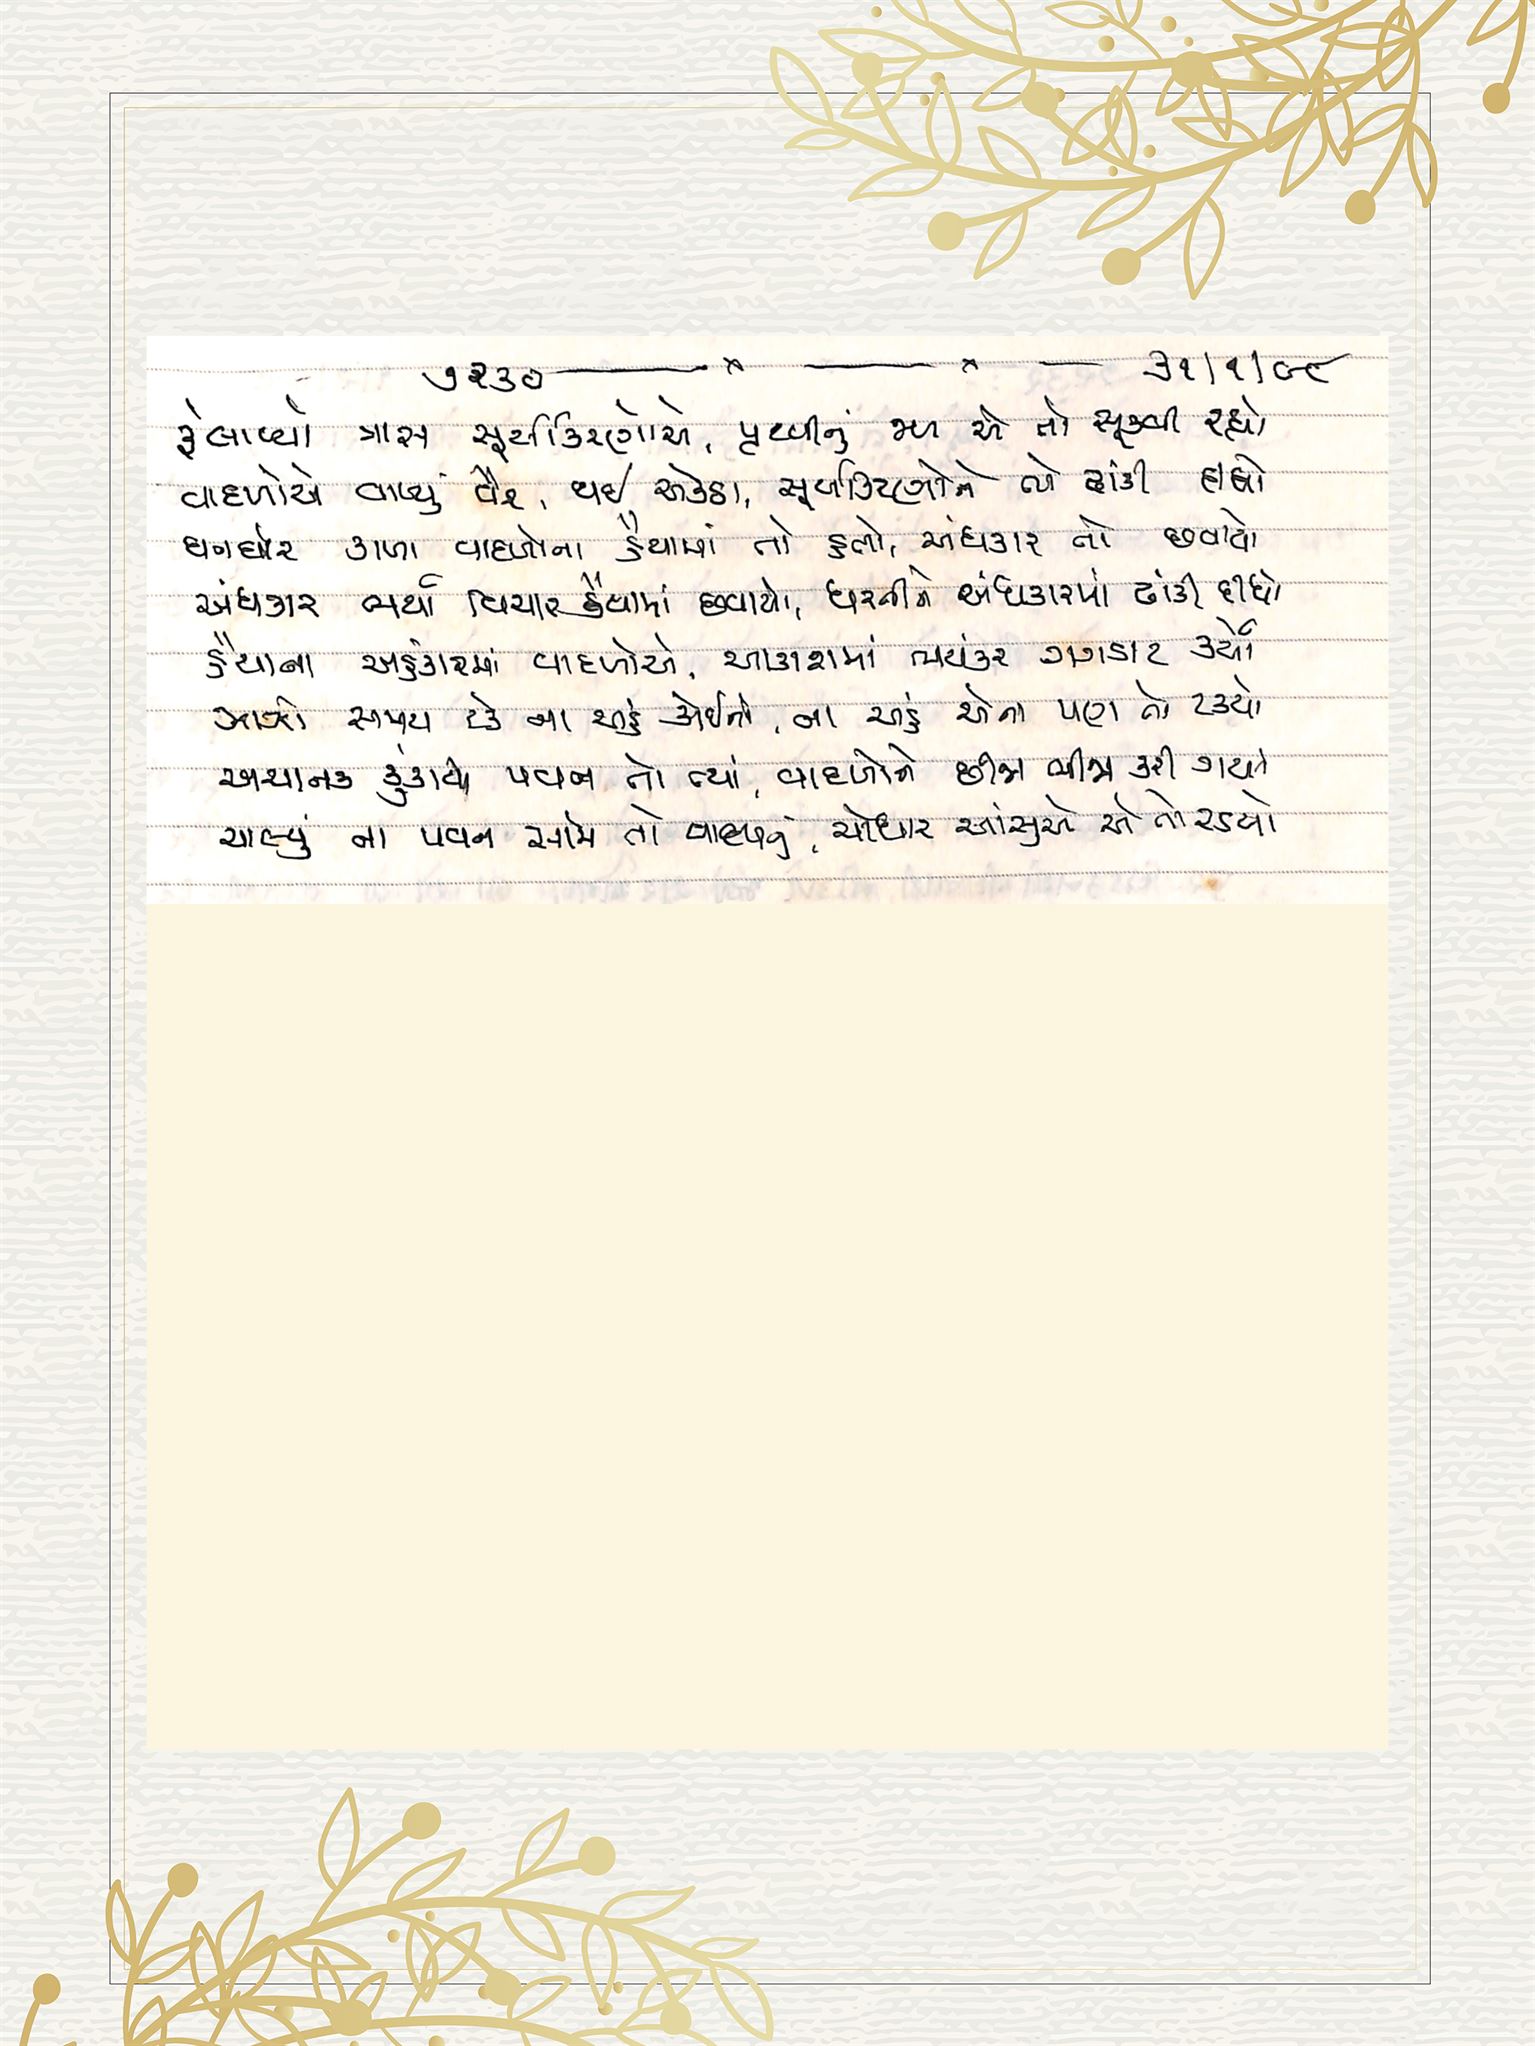 ૭૨૩૦ — x — x — ૩૧/૧/૯૮
ફેલાવ્યો ત્રાસ સૂર્યકિરણોએ, પૃથ્વીનું જળ એ તો સૂકવી રહ્યો
વાદળોએ વાળ્યું વૈર, થઈ એકઠા, સૂર્યકિરણોને તો ઢાંકી દીધો
ઘનઘોર કાળા વાદળોના હૈયામાં તો હતો, અંધકાર તો છવાયો
અંધકાર ભર્યા વિચાર હૈયામાં છવાયો, ધરતીને અંધકારમાં ઢાંકી દીધો
હૈયાના અહંકારમાં વાદળોએ, આકાશમાં ભયંકર ગગડાટ કર્યો
સમય ટકે ના અહં કોઈનો, ના અહં એનો પણ તો ટક્યો
અચાનક ફૂંકાયો પવન તો ત્યાં, વાદળોને છીન્ન ભીન્ન કરી ગયો
ચાલ્યું ના પવન સામે તો વાદળનું, ચોધાર આંસુએ એ તો રડયો